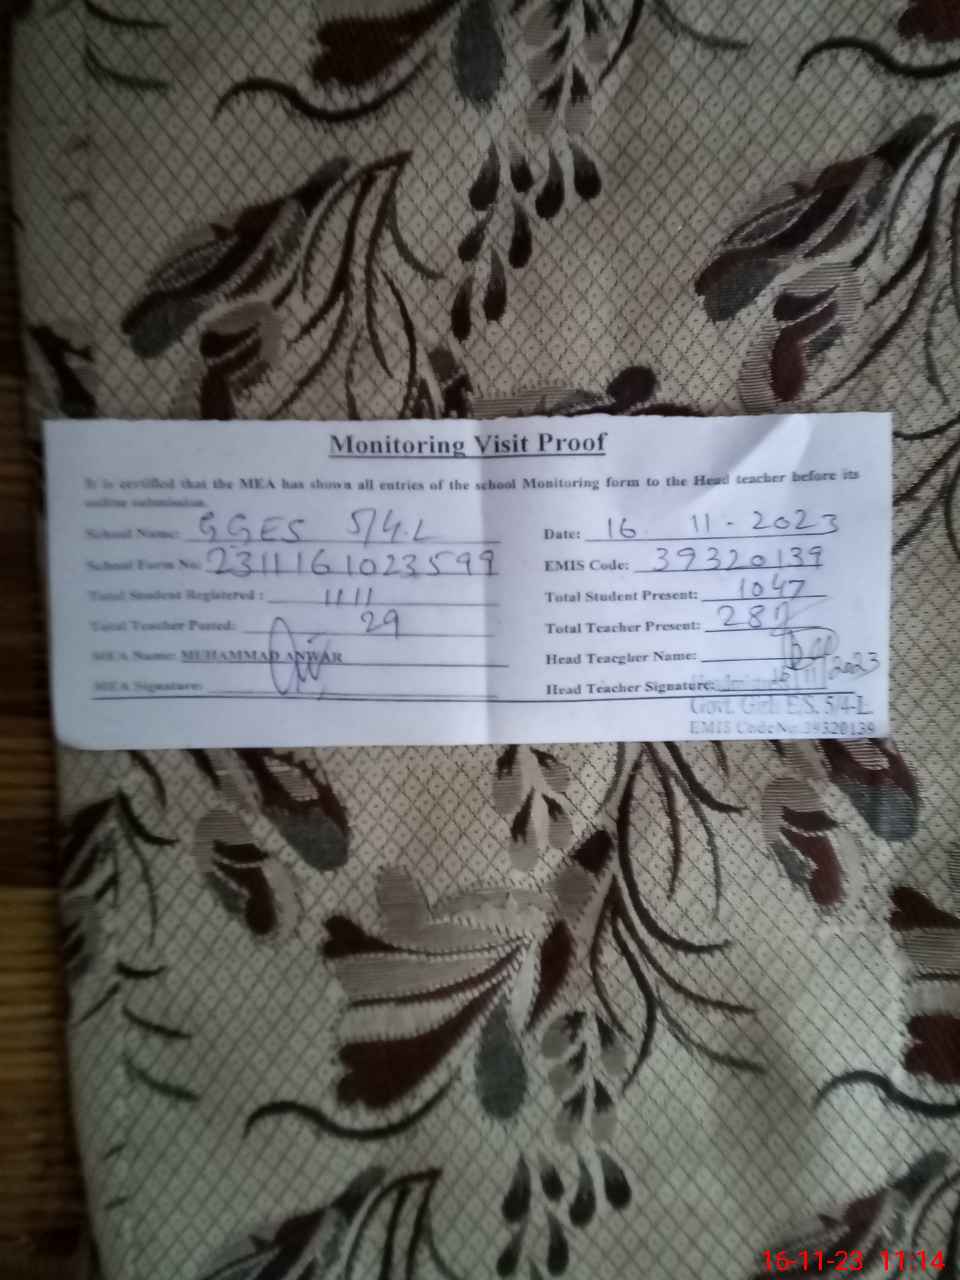 Monitoring Visit Proof
It is certified that the MEA has shown all entries of the school Monitoring form to the Head teacher before its
online submission.
School Name: GGES 5/4.L Date: 16. 11 - 2023
School Form No: 2311161023599 EMIS Code: 39320139
Total Student Registered : 1111 Total Student Present: 1047
Total Teacher Posted: 29 Total Teacher Present: 28
MEA Name: MUHAMMAD ANWAR Head Teacgher Name:
MEA Signature: Head Teacher Signature: 16/11/2023
Govt. Girls E/S. 5/4-L
EMIS Code No. 39320139
16-11-23 11:14